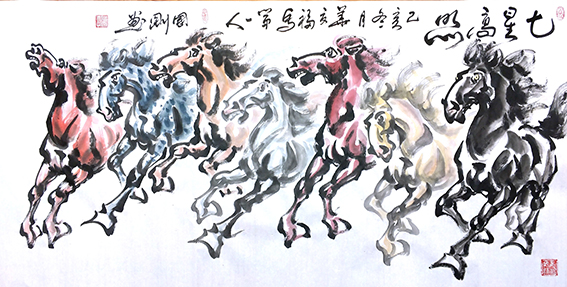 七星高照
己亥冬月華夏福馬第一人
國剛畫